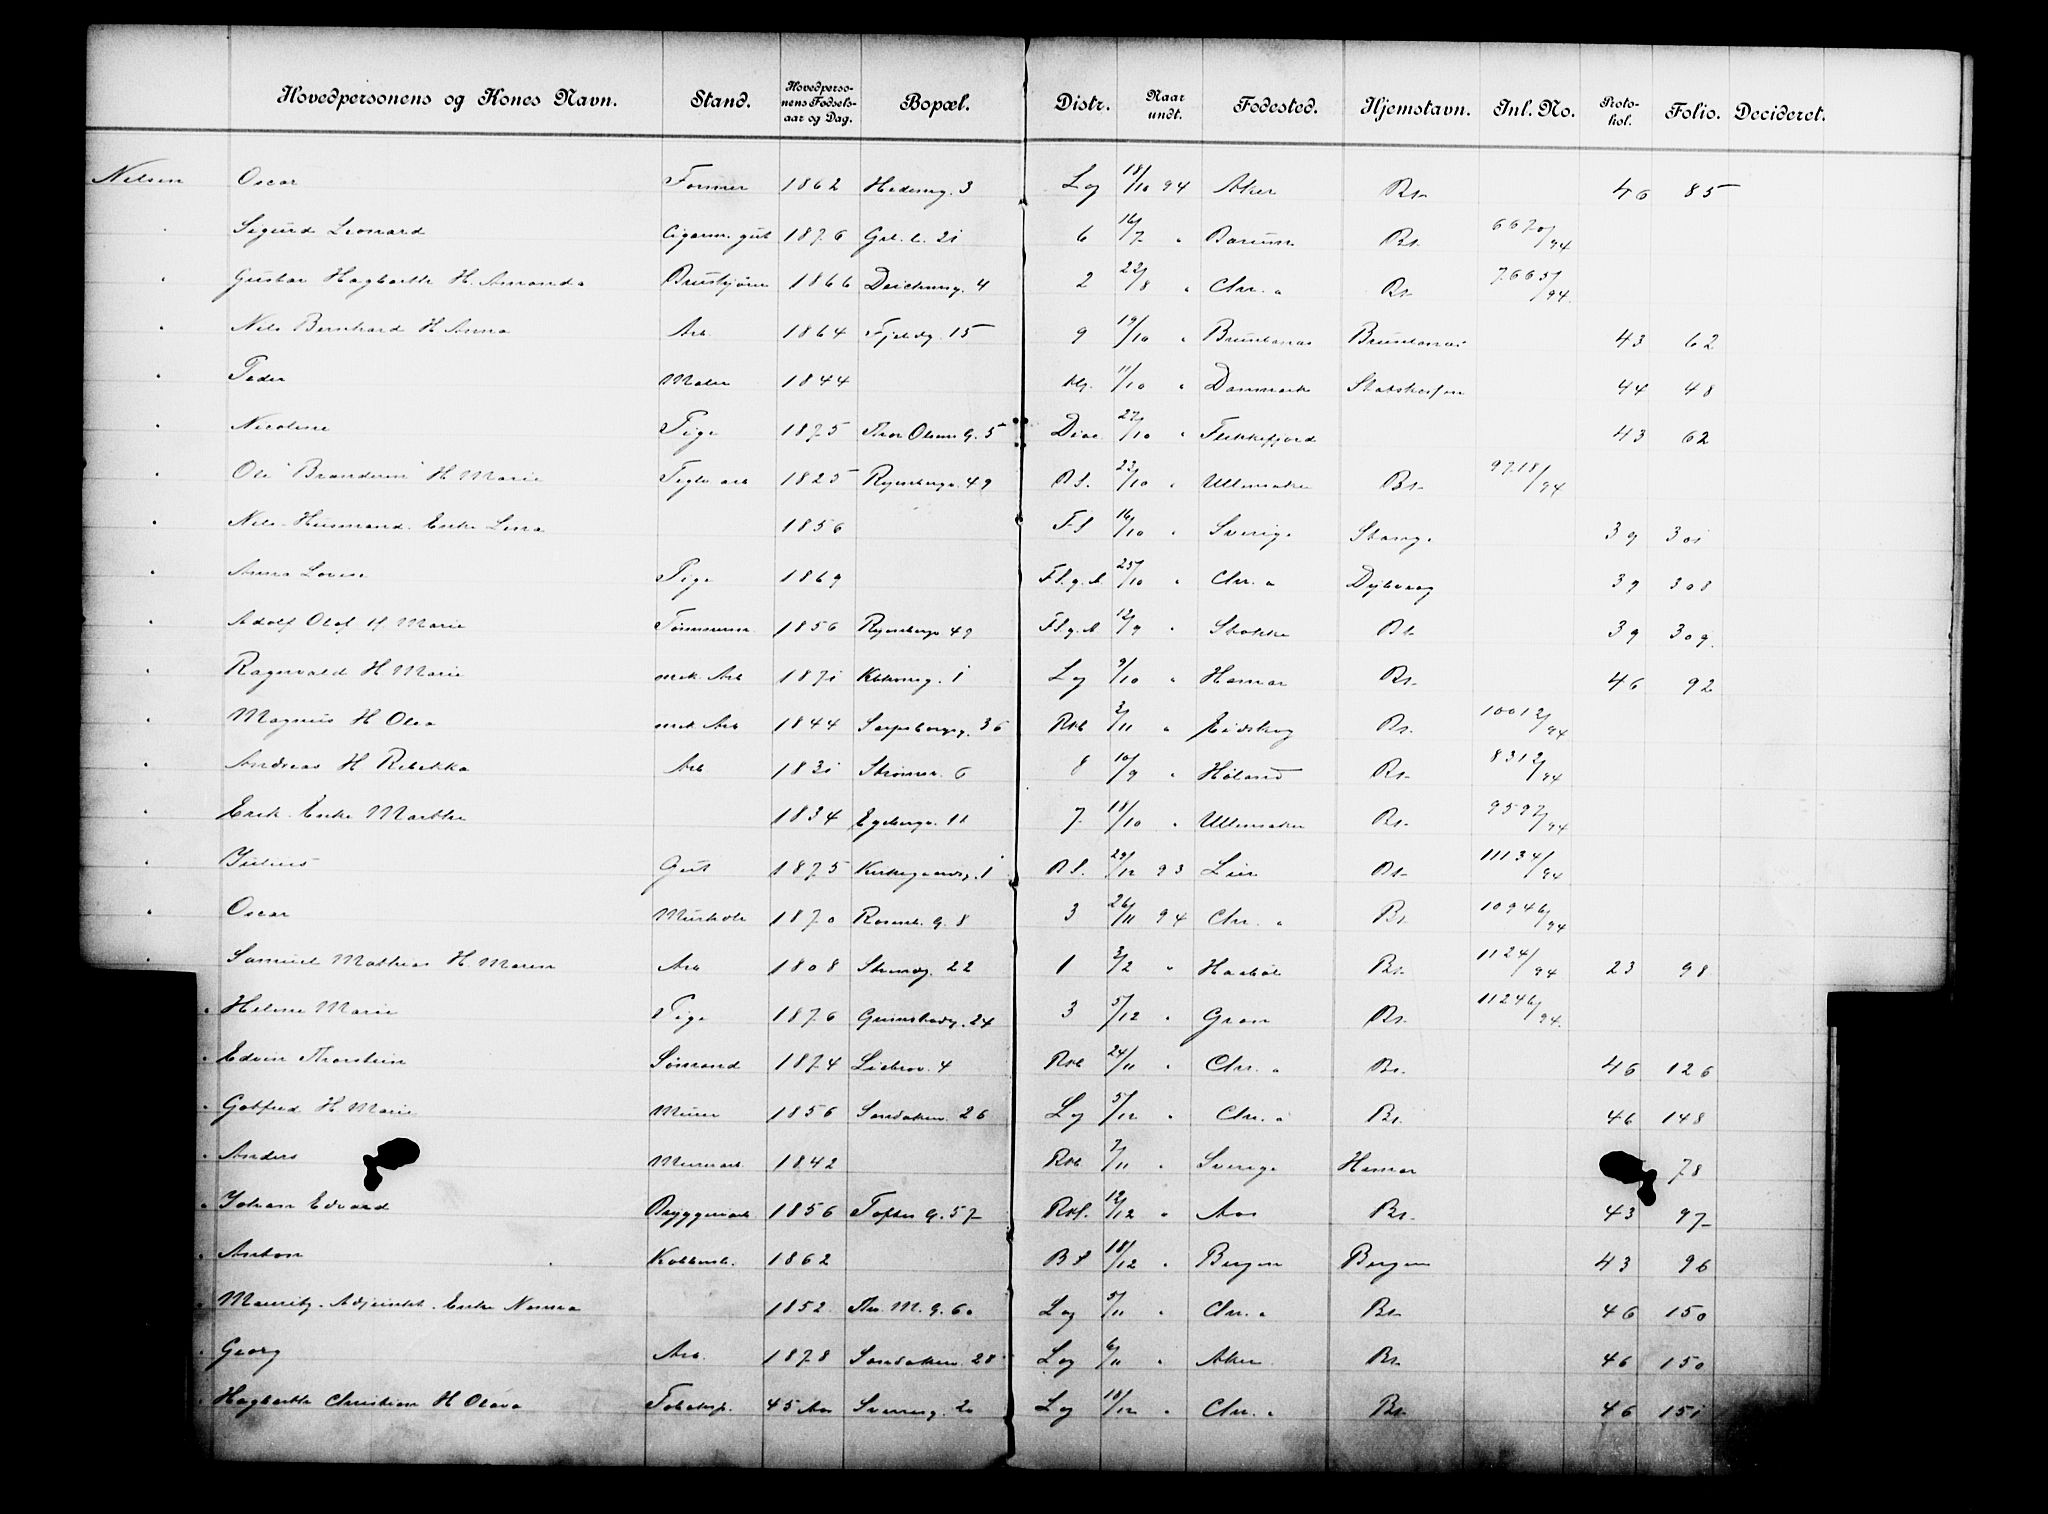 Hovedpersonens og Kones Navn. Stand. Hovedpersonens Fødselsaar og Dag. Bopæl. Distr. Naar undt. Fødested. Hjemstavn. Inl. No. Protokol. Folio. Decideret.
Nilsen Oscar Former 1862 Hedemg. 3 Log 18/10 94 Aker Bt. 46 85
" Sigurd Leonard Cigarm. gut 1876 Grl. l. 21 6 16/7 " Bærum Bt. 6670/94
" Gustav Hagbarth H. Amanda 1866 Deichmsg. 4 2 22/8 " Chr. a Bt. 7665/94
" Nils Bernhard H Anna Arb. 1864 Fjeldg. 15 9 19/10 " Brunlanæs Brunlanæs 43 62
" Peder Maler 1844 11/10 " Danmark 44 48
" Nicoline Pige 1875 Thor Olsens G. 5 Diac 27/10 " Flekkefjord 43 62
" Ole "Brænderen" H Marie Teglv. arb 1825 Ryensbergv. 49 B S. 23/10 " Ullensaker Bt. 9718/94
" Nils Husmand. Enke Lina 1856 F S 16/10 " Sverige Stange 39 301
" Anna Lovise Pige 1869 Fl. g. A 25/10 " Chr. a Dybvaag 39 308
" Adolf Olaf H Marie Tømmerm. 1856 Ryensbergv. 49 Fl. g. A 12/9 " Stokke Bt 39 309.
" Ragnvald H Marie mek. Arb 1871 1 Log 9/10 " Hamar Bt. 46 92
" Magnus H Olea mek Arb 1844 Sarpsborgg. 36 Rkb 2/11 " Eidskog Bt. 10012/94
" Andreas H Rebekka Arb 1831 Strømsv. 6 8 10/9 " Høland Bt. 8312/94
" Erik. Enke Marthe 1834 Egebergv. 11 7 18/10 " Ullensaker Bt. 9597/94
" Julius Gut 1875 Kirkegaardsg. 1 B S. 29/12 93 Lier Bt. 11134/94
" Oscar Murhdl. 1870 Rosenk. G. 8 3 26/11 94 Chr. a Bt. 10946/94
" Samuel Mathias H. Maren Arb 1808 Strandg. 22 1 3/2 " Haabøl Bt. 1124/94 23 98
" Helene Marie Pige 1876 Grünsbadg. 24 3 5/12 " Gran Bt. 11246/94
" Edvin Thorstein Sømand 1874 Liabrov. 4 Rkb 24/11 " Chr. a Bt. 46 126
" Gotfred H Marie Murer 1856 Sandakerv. 26 Log 5/12 " Chr. a Bt. 46 148
" Anders Murerarb. 1842 Rkb 7/11 " Sverige Hamar 78
" Johan Edvard Bryggeriarb 1856 Toftes G. 57 Rkl. 12/12 " Aas Bt. 43 97
" Anton 1862 B S 18/12 " Bergen Bergen 43 96
" Mauritz. Adjunkt. Enke Nanna 1852. Thv. M. G. 60 Log 5/11 " Chr. a Bt. 46 150
" Georg Arb. 1878 Sandakerv. 28 Log 6/11 " Aker Bt. 46 150
" Hagbarth Christian H Olava 45 Aar Sverreg. 20 Log 10/12 " Chr. a Bt. 46 151